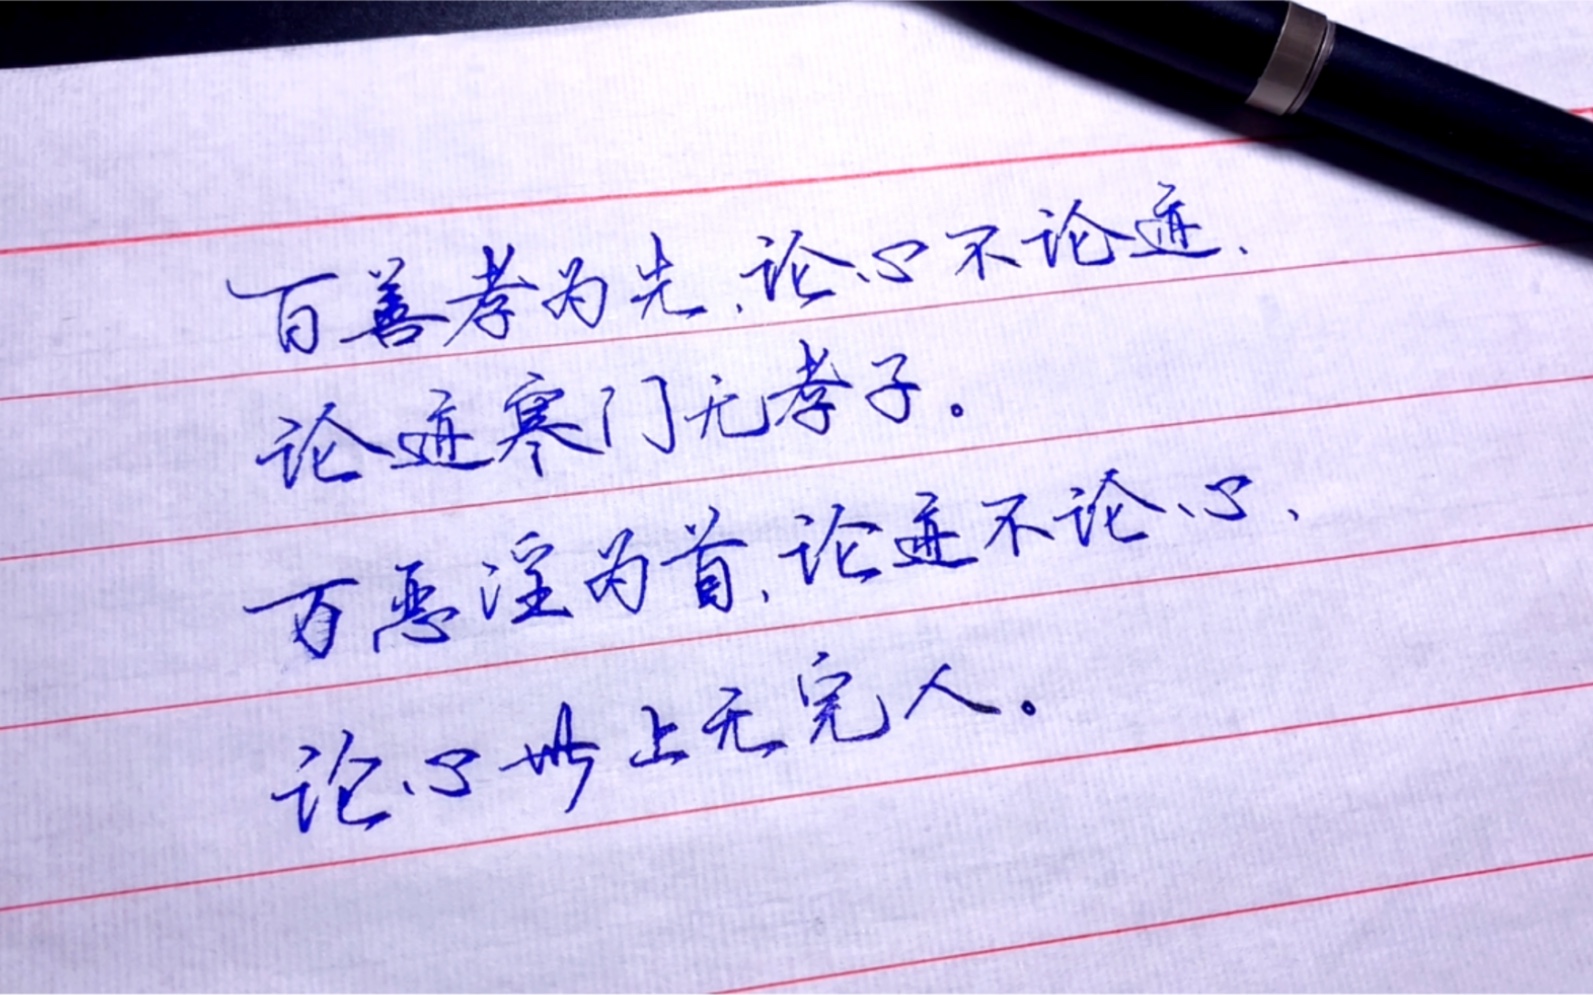 百善孝为先、论心不论迹、
论迹寒门无孝子。
万恶淫为首、论迹不论心、
论心世上无完人。